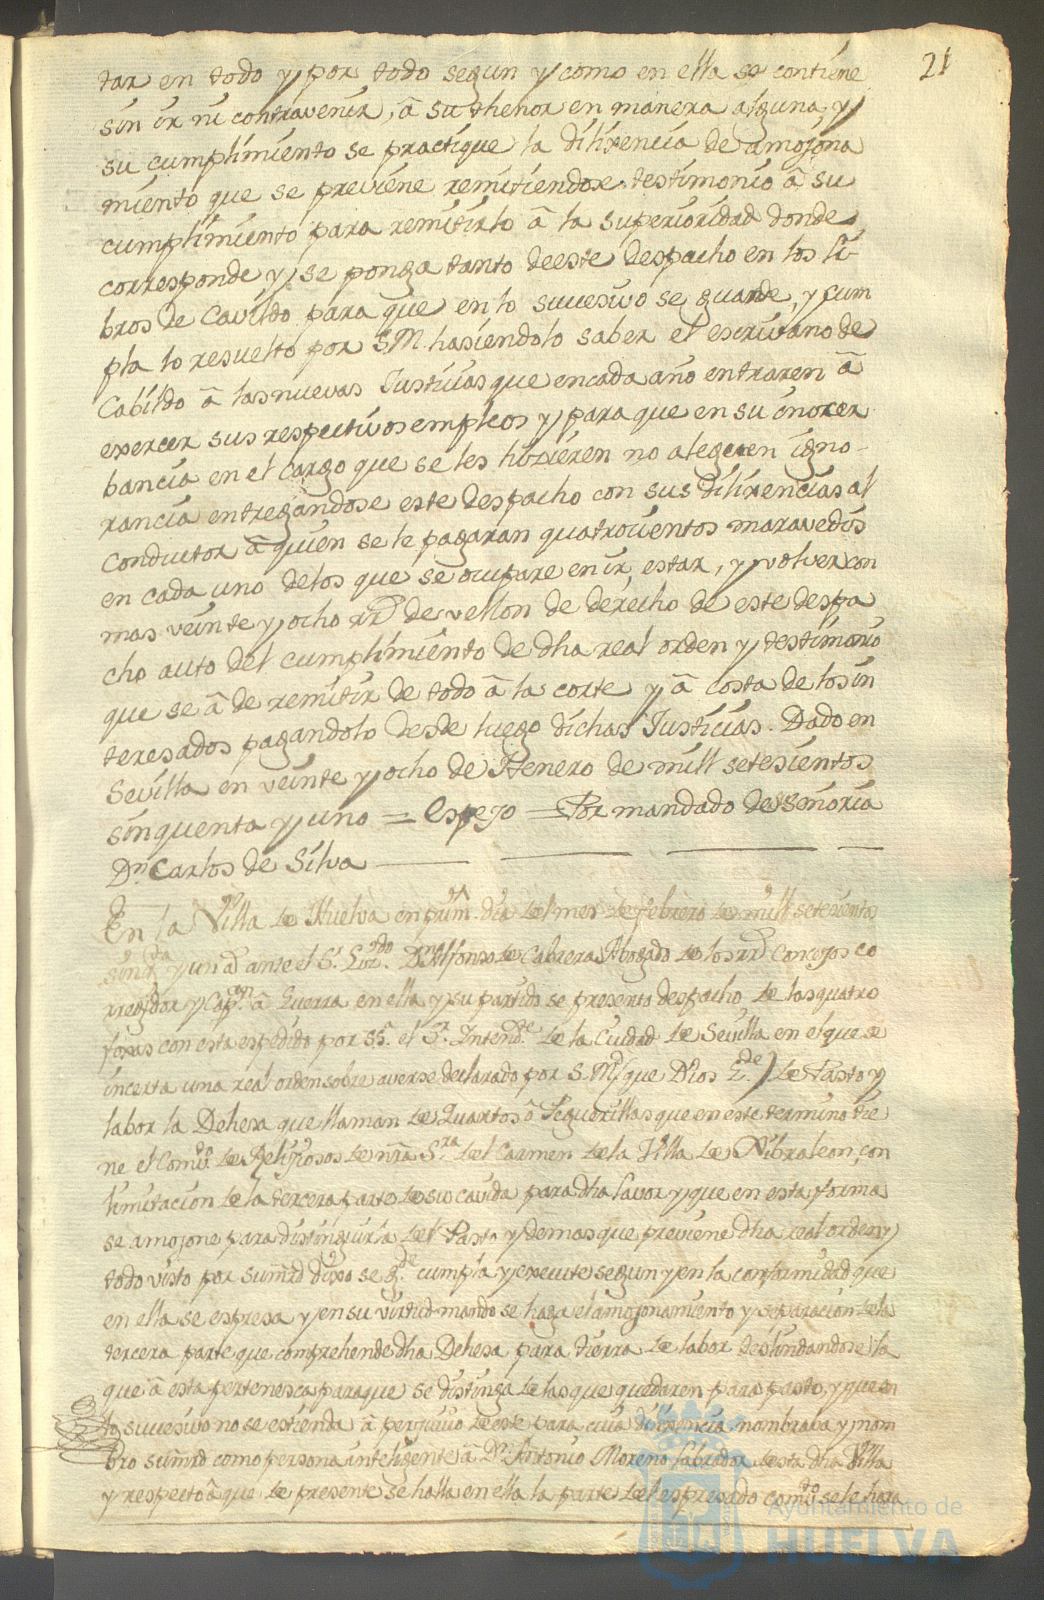 21
tar en todo y por todo segun y como en ella se contiene
sin ir ni contravenir, â su thenor en manera alguna, y
su cumplimiento se practique la dilixencia de amojona
miento que se previene remitiendose testimonio â su
cumplimiento para remitirlo â la superioridad donde
corresponde, y se ponga tanto de este despacho en los li-
bros de Cavildo para que en lo sucesivo se guarde, y cum
pla lo resuelto por S.M. hasiendolo saber el escrivano de
Cabildo â las nuevas Justicias que en cada año entraren â
exercer sus respectivos empleos y para que en su
bancia en el cargo que se les hizieren no aleguen igno-
rancia entregandose este despacho con sus dilixencias al
conductor â quien se le pagaran quatrocientos maravedis
en cada uno de los que se ocupare en ir, estar, y volver con
mas veinte y ocho rr.s de vellon de derecho de este despa
cho auto del cumplimiento de dha real orden y testimonio
que se â de remitir de todo â la corte y â costa de los in
teresados pagandolo desde luego dichas Justicias. Dado en
Sevilla en veinte y ocho de Henero de mill setesientos
sinquenta y uno = Espejo = Por mandado de su señoria
Dn. Carlos de Silva
En la Villa de Huelva en prim.o dia del mes de febrero de mill setesientos
sinq.ta y un a.s ante el S.r Liz.do Dn. Alfonso de Cabrera Abogado de los rr.s Consejos co
rregidor y Cap.n â Guerra en ella y su partido se presento despacho de las quatro
foxas con esta espedido por S.S.a el S.r Intend.te de la Ciudad de Sevilla en el que se
incerta una real orden sobre averse declarado por S. M. (que Dios G.de) de Pasto y
labor la Dehesa que llaman de Quartos ô Segurillas que en este termino tie
ne el Comv.to de Religiosos de nrã Sr.a del Carmen de la Villa de Gibraleon, con
limitacion de la tercera parte de su cavida para dha lavor y que en esta forma
se amojone para distinguirla del Pasto y demas que previene dha real orden y
todo visto por su mrd dixo se g.de cumpla y execute segun y en la conformidad que
en ella se espresa y en su virtud mando se haga el amojonamiento y separacion de la
tercera parte que comprehende dha Dehesa para tierra de labor deslindandose la
que â esta pertenesca para que se distinga de las que quedaren para pasto, y que en
lo sucesivo no se estienda â perjuicio de este para cuia dilixencia nombrava y nom
bro su mrd como persona inteligente â Dn. Antonio Moreno labrador de esta dha Villa
y respecto â que de presente se halla en ella la parte del espresado comv.to se le hara
Ayuntamiento de
HUELVA